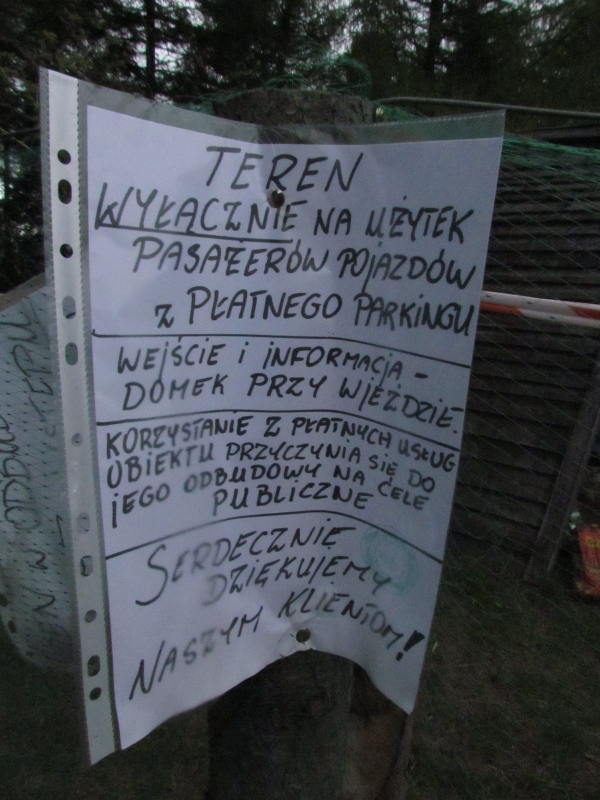 TEREN
WYŁĄCZNIE NA UŻYTEK
PASAŻERÓW POJAZDÓW
z PŁATNEGO PARKINGU
WEJŚCIE i INFORMACJA -
DOMEK PRZY WJEŹDZIE.
KORZYSTANIE Z PŁATNYCH USŁUG
OBIEKTU PRZYCZYNIA SIĘ DO
JEGO ODBUDOWY NA CELE
PUBLICZNE
SERDECZNIE
DZIĘKUJEMY
NASZYM KLIENTOM!